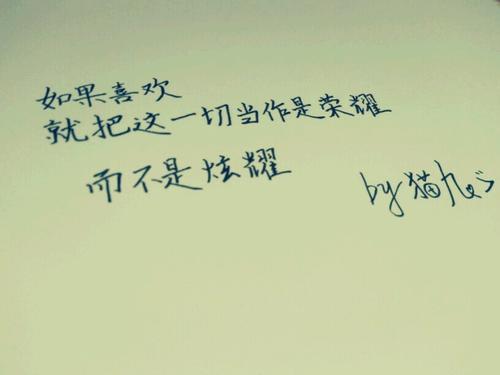 如果喜欢
就把这一切当作是荣耀
而不是炫耀
by 猫九